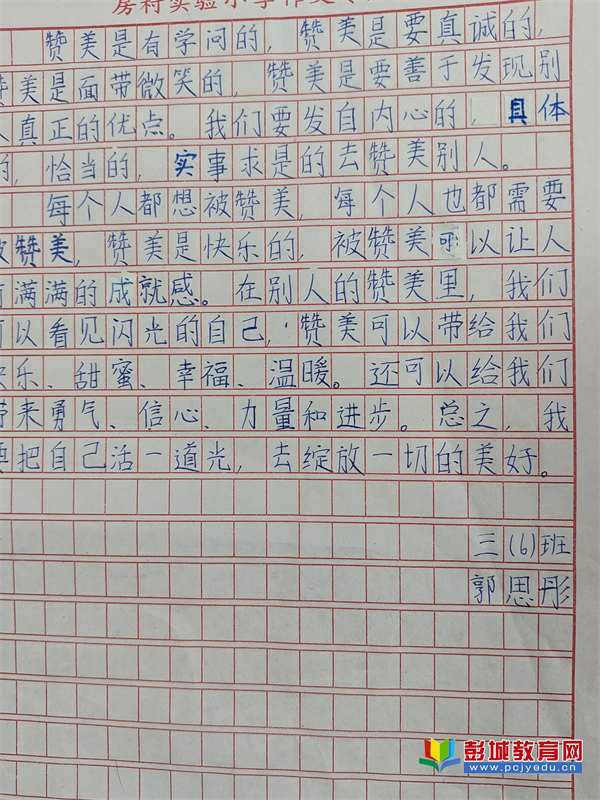 房村实验小学作文
赞美是有学问的，赞美是要真诚的，
赞美是面带微笑的，赞美是要善于发现别
人真正的优点。我们要发自内心的，具体
的，恰当的，实事求是的去赞美别人。
每个人都想被赞美，每个人也都需要
被赞美，赞美是快乐的，被赞美可以让人
有满满的成就感。在别人的赞美里，我们
可以看见闪光的自己，赞美可以带给我们
快乐、甜蜜、幸福、温暖。还可以给我们
带来勇气、信心、力量和进步。总之，我
要把自己活一道光，去绽放一切的美好。
三(6)班
郭思彤
彭城教育网
www.pcjyedu.cn